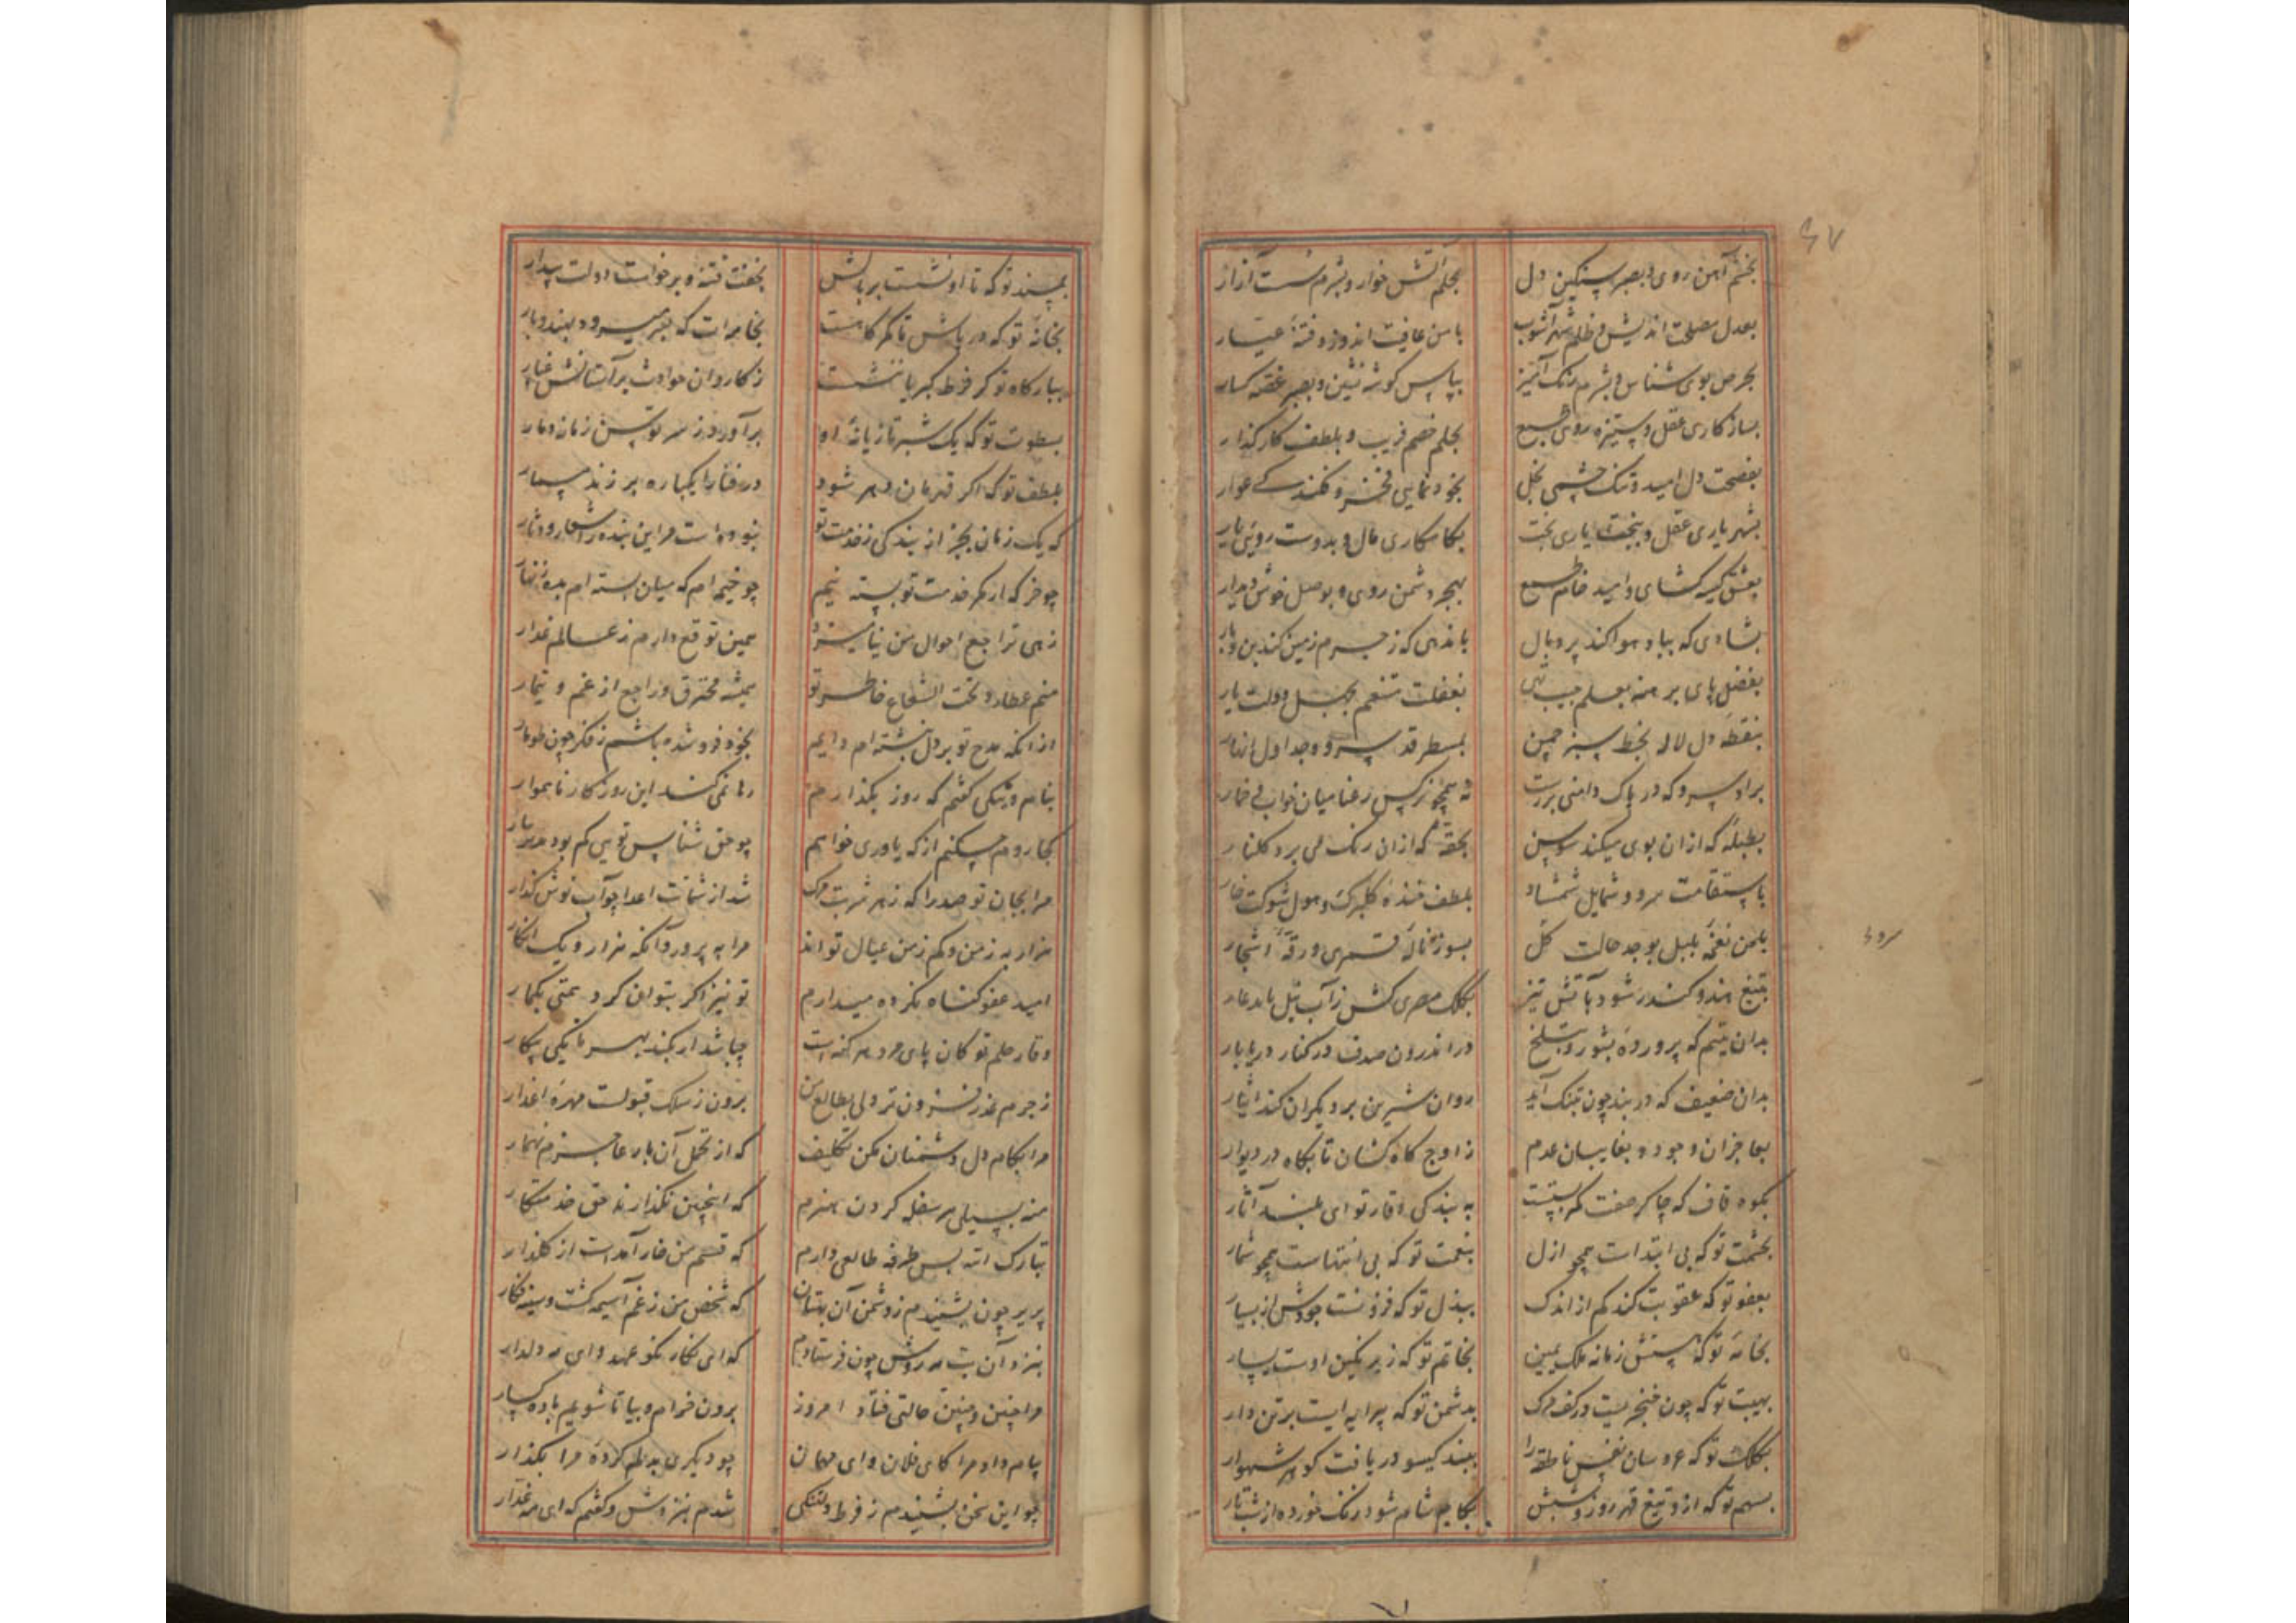 ۶۷
بخشم آهن روی و بصبر سنکین دل
بحلم آتش خوار و بشرم مست آزار
بعدل مصلحت اندیش و ظلم شهرآشوب
بامن عافیت اندوز و فتنهٔ عیار
بحرص بوی شناس و بشرم رنک آمیز
بپاس کوشه نشین و بصبر غصه کسار
بسازکاری عقل و ستیزه روی طبع
بحلم خصم فریب و بلطف کارکذار
بفصحت دل امید و تنک چشمی بخل
بخودنمایی فخر و
بشهریاری عقل و ببخت یاری بخت
بکامکاری مال و بدوست رویی یار
بعشق کیسه کشای و امید خام طمع
بهجر دشمن روی و بوصل خوش دیدار
بشادی که بباد هوا کند پر و بال
باندهی که ز جرم زمین کند بن و بار
بفضل پای برهنه بعلم جیب تهی
بغفلت متنعم بجهل دولت یار
بنقطهٔ دل لاله بخط سبز چمن
بمسطر قد سرو و جداول انهار
براد سرو که در پاک دامنی برست
نه همچو نرکس رعنا میان خواب و خمار
بطبلهٔ که ازان بوی میکند سوسن
بحقهٔ که ازان رنک می برد کلنار
باستقامت سرو و شمایل شمشاد
بلطف خندهٔ کلبرک و هول شوکت خار
بلحن نغمهٔ بلبل بوجد حالت کل
بسوز نالهٔ قمری و رقهٔ اشجار
سرو
بتیغ هندو کندر شود بآتش تیز
بکلک مصری کش ز آب نیل باید عار
بدان یتیم که پروردهٔ بشور و بتلخ
در اندرون صدف در کنار دریا بار
بدان ضعیف که در بند چون بتنک آید
روان شیرین بر دیکران کند ایثار
بعاجزان وجود و بغایبان عدم
ز اوج کاه کشان تا بکاه در دیوار
بکوه قاف که چاکر صفت کمر بستست
به بندکی وقار تو ای بلند آثار
بحشمت تو که بی ابتداست همچو ازل
بنعمت تو که بی انتهاست همچو شمار
بعفو تو که عقوبت کند کم از اندک
ببذل تو که فزونست جودش از بسیار
بخامهٔ تو که هستش زمانه ملک یمین
بخاتم تو که زیر نکین اوست یسار
بهیبت تو که چون خنجریست در کف مرک
بدشمن تو که پیرایه ایست بر تن دار
بکلک تو که عروسان نفس ناطقه را
ببند کیسو دریافت کوهر شهوار
بسهم تو که ازو تیغ قهر روز و شبش
بکام شام شود رنک خورده از شب تار
بمسند تو که تا او نشست بر بالش
بخفت فتنه و برخواست دولت بیدار
بخانهٔ تو که در پاش تا کمر کاهست
بخامه ات که بسر میرود بهند و بار
ببارکاه تو کز فرط کبریا ننشست
ز کاروان حوادث بر آستانش غبار
بسطوت تو که یک شبر تازیانهٔ او
برآورد ز سر توسن زمانه دمار
بلطف تو که اکر قهرمان دهر شود
در فنا را یکباره بر زند مسمار
که یک زمان بجز از بندکی ز خدمت تو
نبوده است مر این بنده را شعار و دثار
چو خر که ار کمر خدمت تو بسته نیم
چو خیمه ام که میان بسته ام بده زنهار
زهی تراجع احوال من نیامیزد
همین توقع دارم ز عالم غدار
منم عطارد و تحت الشعاع خاطر تو
همیشه محترق و راجع از غم و تیمار
ازانکه مدح تو بر دل نبشته ام دایم
بخود فرو شده باشم ز فکر چون طومار
بنام ویشکی کفتم که روز بکذارم
رها نمی کند این روزکار ناهموار
کجا روم چکنم از که یاوری خواهم
چو حق شناس تویی کم بود مدد یار
مرا بجان تو صدرا که زهر شربت مرک
شد از شماتت اعدا چو آب نوش کوار
هزار به ز من و کم ز من عیال تواند
مرا بپرور وآنکه هزار و یک انکار
امید عفو کناه نکرده میدارم
تو نیز اکر بتوان کرد همتی بکمار
وقار حلم تو کان پای مرد هر کنه است
چباشد ار بکند بهر ما یکی پیکار
ز جرم عذر فزون تر ولی بطالع من
برون ز سلک قبولست مهرهٔ اعذار
مرا بکام دل دشمنان مکن تکلیف
که از تحمل آن بار عاجزم زنهار
منه بسیلی هر سفله کردن هنرم
که اینچنین نکذارند حق خدمتکار
تبارک الله بس طرفه طالعی دارم
که قسم من خار آمدست از کلزار
پریر چون بشنیدم ز دشمن آن بهتان
که شخص من ز غم آسیمه کشت و سینه فکار
بنزد آن بت مه روش چون فرستادم
که ای نکار نکو عهد و ای مه دلدار
مرا چنین و چنین حالتی فتاد امروز
برون خرام و بیا تا شویم باده کسار
پیام داد مرا کای فلان و ای مهمان
چو دیکری بدلم کردهٔ مرا بکذار
چو این سخن بشنیدم ز فرط دلتنکی
شدم بنزدش و کفتم که ای مه غدار